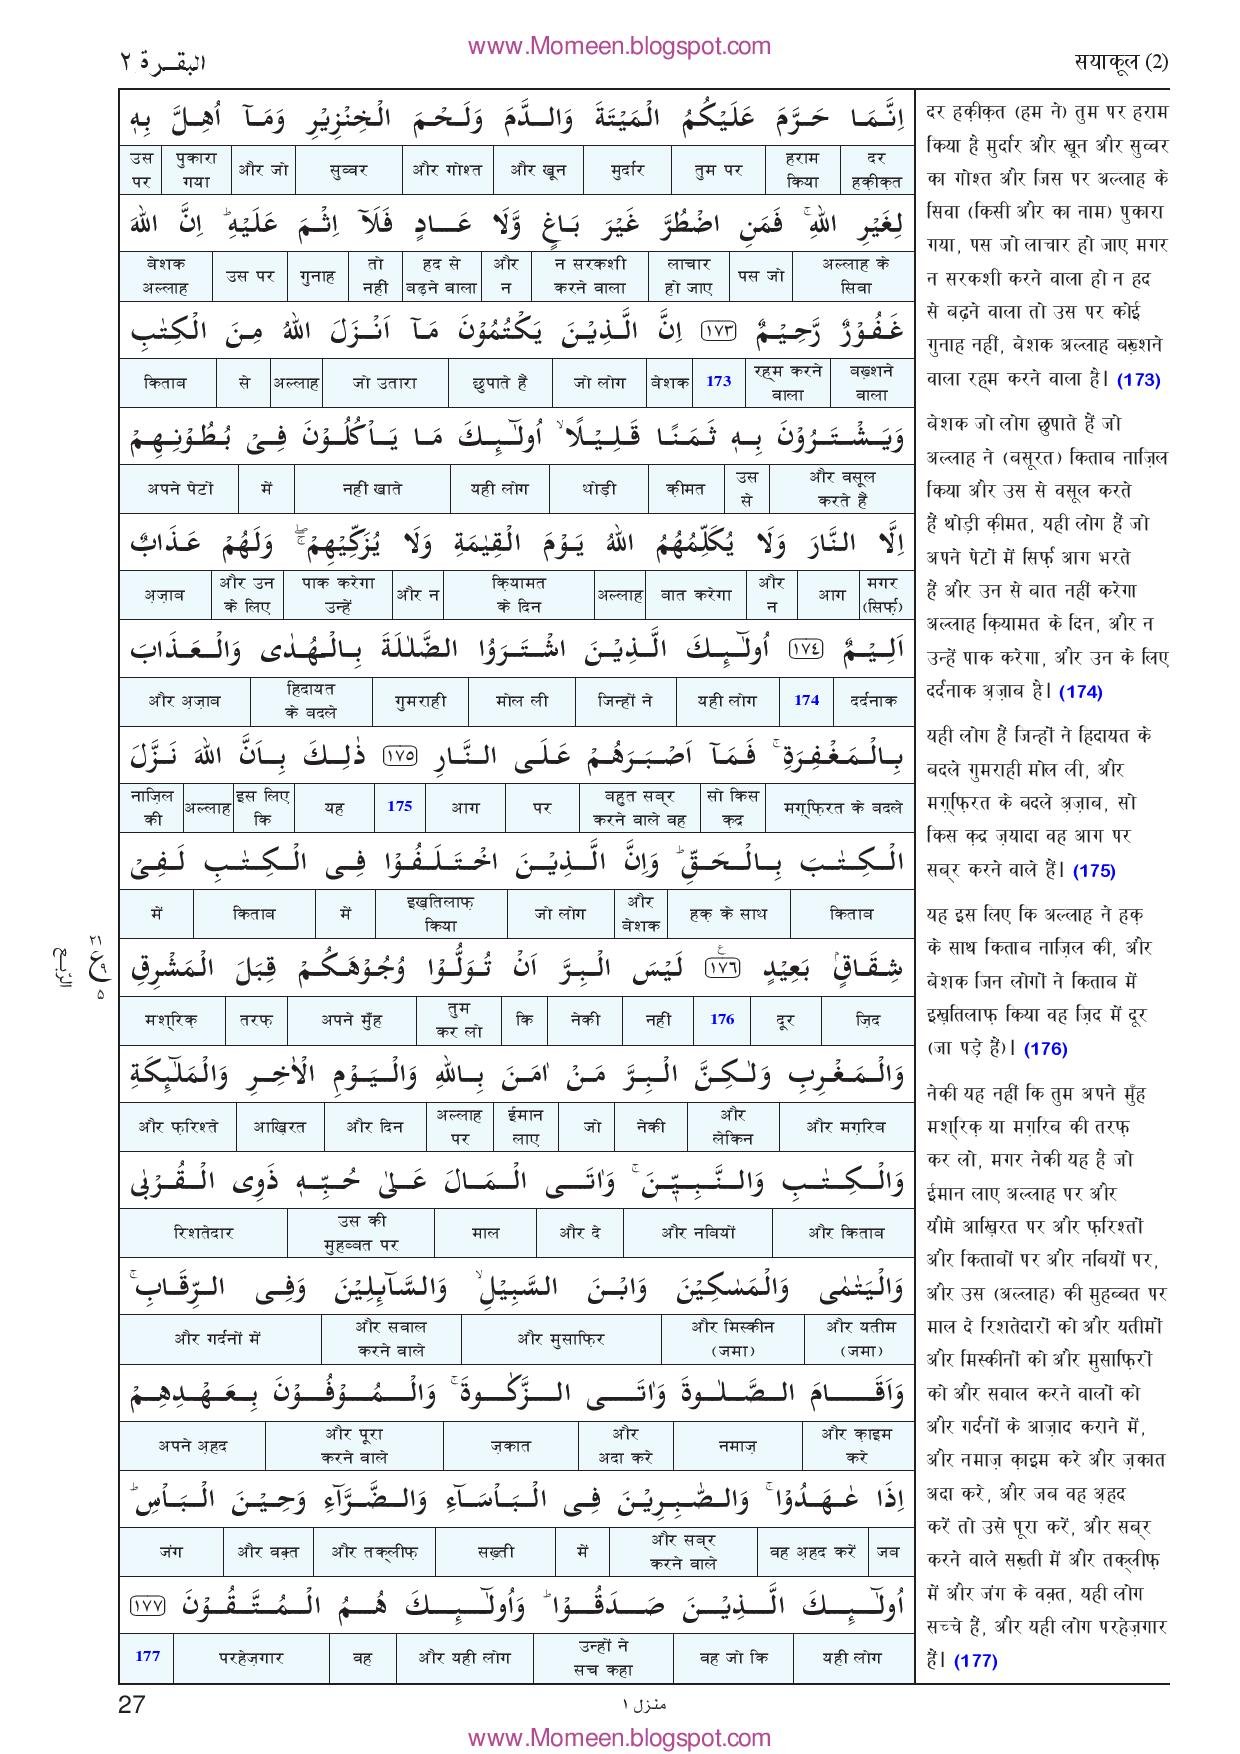 www.Momeen.blogspot.com
البقرة ٢
सयाकूल (2)
اِنَّمَا حَرَّمَ عَلَيْكُمُ الْمَيْتَةَ وَالدَّمَ وَلَحْمَ الْخِنْزِيْرِ وَمَآ اُهِلَّ بِهٖ
दर हक़ीक़त हराम किया तुम पर मुर्दार और ख़ून और गोश्त सुव्वर और जो पुकारा गया उस पर
لِغَيْرِ اللّٰهِ ۚ فَمَنِ اضْطُرَّ غَيْرَ بَاغٍ وَّلَا عَادٍ فَلَآ اِثْمَ عَلَيْهِ ؕ اِنَّ اللّٰهَ
अल्लाह के सिवा पस जो लाचार हो जाए न सरकशी करने वाला और न हद से बढ़ने वाला तो नहीं गुनाह उस पर बेशक अल्लाह
غَفُوْرٌ رَّحِيْمٌ ۝١٧٣ اِنَّ الَّذِيْنَ يَكْتُمُوْنَ مَآ اَنْزَلَ اللّٰهُ مِنَ الْكِتٰبِ
बख़्शने वाला रह्म करने वाला 173 बेशक जो लोग छुपाते हैं जो उतारा अल्लाह से किताब
وَيَشْتَرُوْنَ بِهٖ ثَمَنًا قَلِيْلًا ۙ اُولٰٓئِكَ مَا يَاْكُلُوْنَ فِيْ بُطُوْنِهِمْ
और वसूल करते हैं उस से क़ीमत थोड़ी यही लोग नहीं खाते में अपने पेटों
اِلَّا النَّارَ وَلَا يُكَلِّمُهُمُ اللّٰهُ يَوْمَ الْقِيٰمَةِ وَلَا يُزَكِّيْهِمْ ۖۚ وَلَهُمْ عَذَابٌ
मगर (सिर्फ़) आग और न बात करेगा अल्लाह क़ियामत के दिन और न पाक करेगा उन्हें और उन के लिए अज़ाब
اَلِيْمٌ ۝١٧٤ اُولٰٓئِكَ الَّذِيْنَ اشْتَرَوُا الضَّلٰلَةَ بِالْهُدٰى وَالْعَذَابَ
दर्दनाक 174 यही लोग जिन्हों ने मोल ली गुमराही हिदायत के बदले और अज़ाब
بِالْمَغْفِرَةِ ۚ فَمَآ اَصْبَرَهُمْ عَلَى النَّارِ ۝١٧٥ ذٰلِكَ بِاَنَّ اللّٰهَ نَزَّلَ
मग़्फ़िरत के बदले सो किस क़द्र बहुत सब्र करने वाले वह पर आग 175 यह इस लिए कि अल्लाह नाज़िल की
الْكِتٰبَ بِالْحَقِّ ؕ وَاِنَّ الَّذِيْنَ اخْتَلَفُوْا فِى الْكِتٰبِ لَفِيْ
किताब हक़ के साथ और बेशक जो लोग इख़तिलाफ़ किया में किताब में
شِقَاقٍۭ بَعِيْدٍ ۝١٧٦ لَيْسَ الْبِرَّ اَنْ تُوَلُّوْا وُجُوْهَكُمْ قِبَلَ الْمَشْرِقِ
ज़िद दूर 176 नहीं नेकी कि तुम कर लो अपने मुँह तरफ़ मशरिक़
وَالْمَغْرِبِ وَلٰكِنَّ الْبِرَّ مَنْ اٰمَنَ بِاللّٰهِ وَالْيَوْمِ الْاٰخِرِ وَالْمَلٰٓئِكَةِ
और मग़रिब और लेकिन नेकी जो ईमान लाए अल्लाह पर और दिन आख़िरत और फ़रिश्ते
وَالْكِتٰبِ وَالنَّبِيّٖنَ ۚ وَاٰتَى الْمَالَ عَلٰى حُبِّهٖ ذَوِى الْقُرْبٰى
और किताब और नबियों और दे माल उस की मुहब्बत पर रिशतेदार
وَالْيَتٰمٰى وَالْمَسٰكِيْنَ وَابْنَ السَّبِيْلِ ۙ وَالسَّآئِلِيْنَ وَفِى الرِّقَابِ ۚ
और यतीम (जमा) और मिस्कीन (जमा) और मुसाफ़िर और सवाल करने वाले और गर्दनों में
وَاَقَامَ الصَّلٰوةَ وَاٰتَى الزَّكٰوةَ ۚ وَالْمُوْفُوْنَ بِعَهْدِهِمْ
और क़ाइम करे नमाज़ और अदा करे ज़कात और पूरा करने वाले अपने अ़हद
اِذَا عٰهَدُوْا ۚ وَالصّٰبِرِيْنَ فِى الْبَاْسَآءِ وَالضَّرَّآءِ وَحِيْنَ الْبَاْسِ ؕ
जब वह अ़हद करें और सब्र करने वाले में सख़्ती और तक्लीफ़ और वक़्त जंग
اُولٰٓئِكَ الَّذِيْنَ صَدَقُوْا ؕ وَاُولٰٓئِكَ هُمُ الْمُتَّقُوْنَ ۝١٧٧
यही लोग वह जो कि उन्हों ने सच कहा और यही लोग वह परहेज़गार 177
दर हक़ीक़त (हम ने) तुम पर हराम
किया है मुर्दार और ख़ून और सुव्वर
का गोश्त और जिस पर अल्लाह के
सिवा (किसी और का नाम) पुकारा
गया, पस जो लाचार हो जाए मगर
न सरकशी करने वाला हो न हद
से बढ़ने वाला तो उस पर कोई
गुनाह नहीं, बेशक अल्लाह बख़्शने
वाला रह्म करने वाला है। (173)
बेशक जो लोग छुपाते हैं जो
अल्लाह ने (बसूरत) किताब नाज़िल
किया और उस से वसूल करते
हैं थोड़ी क़ीमत, यही लोग हैं जो
अपने पेटों में सिर्फ़ आग भरते
हैं और उन से बात नहीं करेगा
अल्लाह क़ियामत के दिन, और न
उन्हें पाक करेगा, और उन के लिए
दर्दनाक अज़ाब है। (174)
यही लोग हैं जिन्हों ने हिदायत के
बदले गुमराही मोल ली, और
मग़्फ़िरत के बदले अज़ाब, सो
किस क़द्र ज़यादा वह आग पर
सब्र करने वाले हैं। (175)
यह इस लिए कि अल्लाह ने हक़
के साथ किताब नाज़िल की, और
बेशक जिन लोगों ने किताब में
इख़तिलाफ़ किया वह ज़िद में दूर
(जा पड़े हैं)। (176)
नेकी यह नहीं कि तुम अपने मुँह
मशरिक़ या मग़रिब की तरफ़
कर लो, मगर नेकी यह है जो
ईमान लाए अल्लाह पर और
यौमे आख़िरत पर और फ़रिश्तों
और किताबों पर और नबियों पर,
और उस (अल्लाह) की मुहब्बत पर
माल दे रिशतेदारों को और यतीमों
और मिस्कीनों को और मुसाफ़िरों
को और सवाल करने वालों को
और गर्दनों के आज़ाद कराने में,
और नमाज़ क़ाइम करे और ज़कात
अदा करे, और जब वह अ़हद
करें तो उसे पूरा करें, और सब्र
करने वाले सख़्ती में और तक्लीफ़
में और जंग के वक़्त, यही लोग
सच्चे हैं, और यही लोग परहेज़गार
हैं। (177)
٢١
ع ٩
٥
الربع
27
منزل ١
www.Momeen.blogspot.com